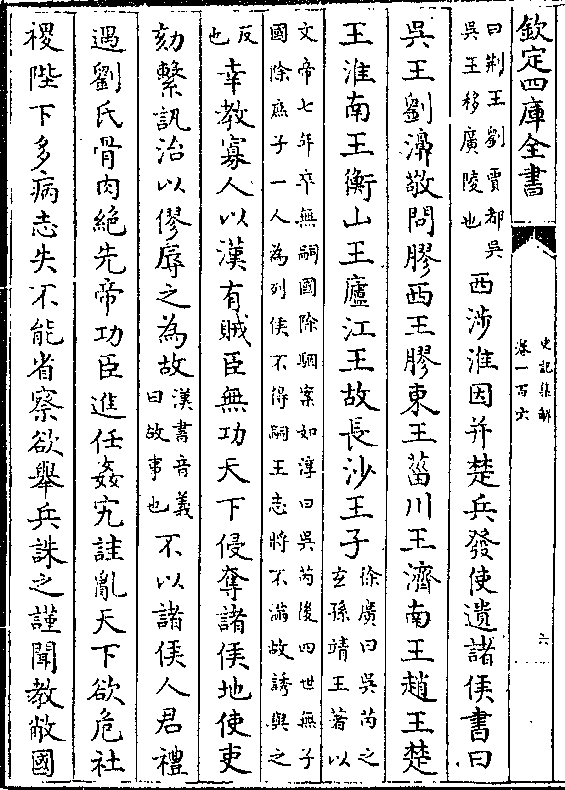 欽定四庫全書
史記集解
卷一百六
六
曰荆王劉賈都吳
吳王移廣陵也
西涉淮因并楚兵發使遺諸侯書曰
吳王劉濞敬問膠西王膠東王菑川王濟南王趙王楚
王淮南王衡山王廬江王故長沙王子
徐廣曰吳芮之
玄孫靖王著以
文帝七年卒無嗣國除駰案如淳曰吳芮後四世無子
國除庶子一人為列侯不得嗣王志將不滿故誘與之
反
也
幸教寡人以漢有賊臣無功天下侵奪諸侯地使吏
劾繫訊治以僇辱之為故
漢書音義
曰故事也
不以諸侯人君禮
遇劉氏骨肉絶先帝功臣進任姦宄詿亂天下欲危社
稷陛下多病志失不能省察欲舉兵誅之謹聞教敝國